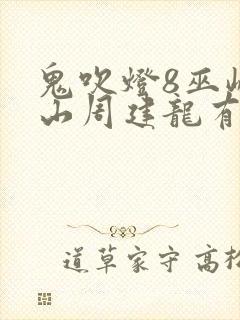 鬼吹燈8巫峽
山周建龍有
道草家守 高松